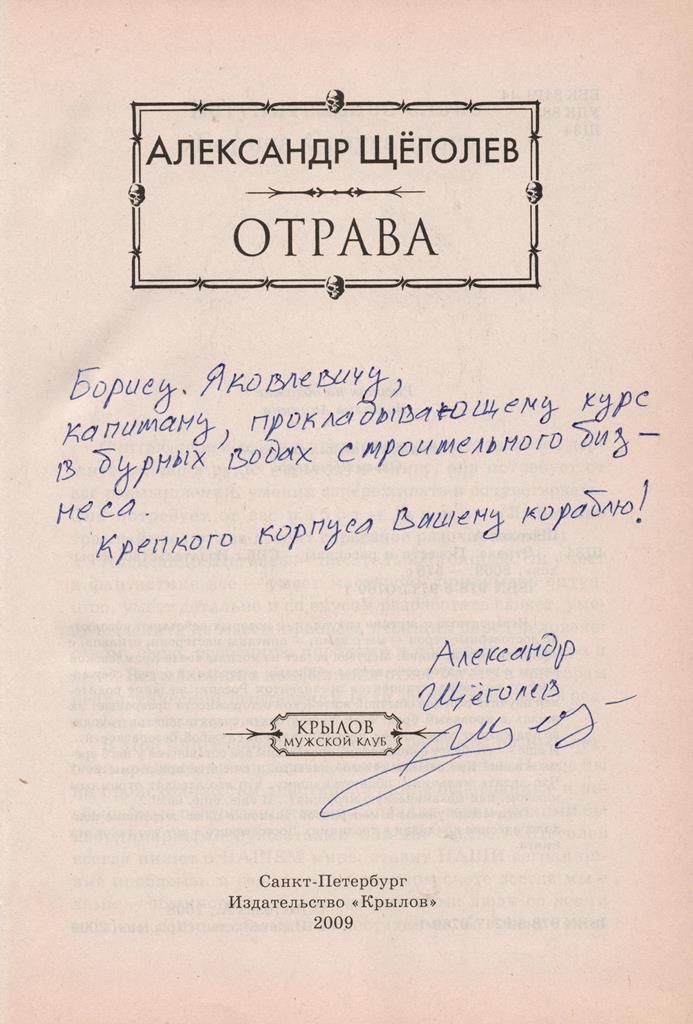 АЛЕКСАНДР ЩЁГОЛЕВ
ОТРАВА
Борису Яковлевичу,
капитану, прокладывающему курс
в бурных водах строительного биз–
неса.
Крепкого корпуса Вашему кораблю!
Александр
Щёголев
КРЫЛОВ
МУЖСКОЙ КЛУБ
Санкт-Петербург
Издательство «Крылов»
2009